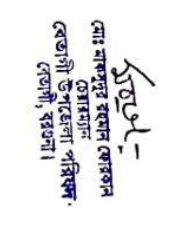 মোঃ মাকসুদুর রহমান ফোরকান
চেয়ারম্যান
বেতাগী উপজেলা পরিষদ
বেতাগী, বরগুনা।